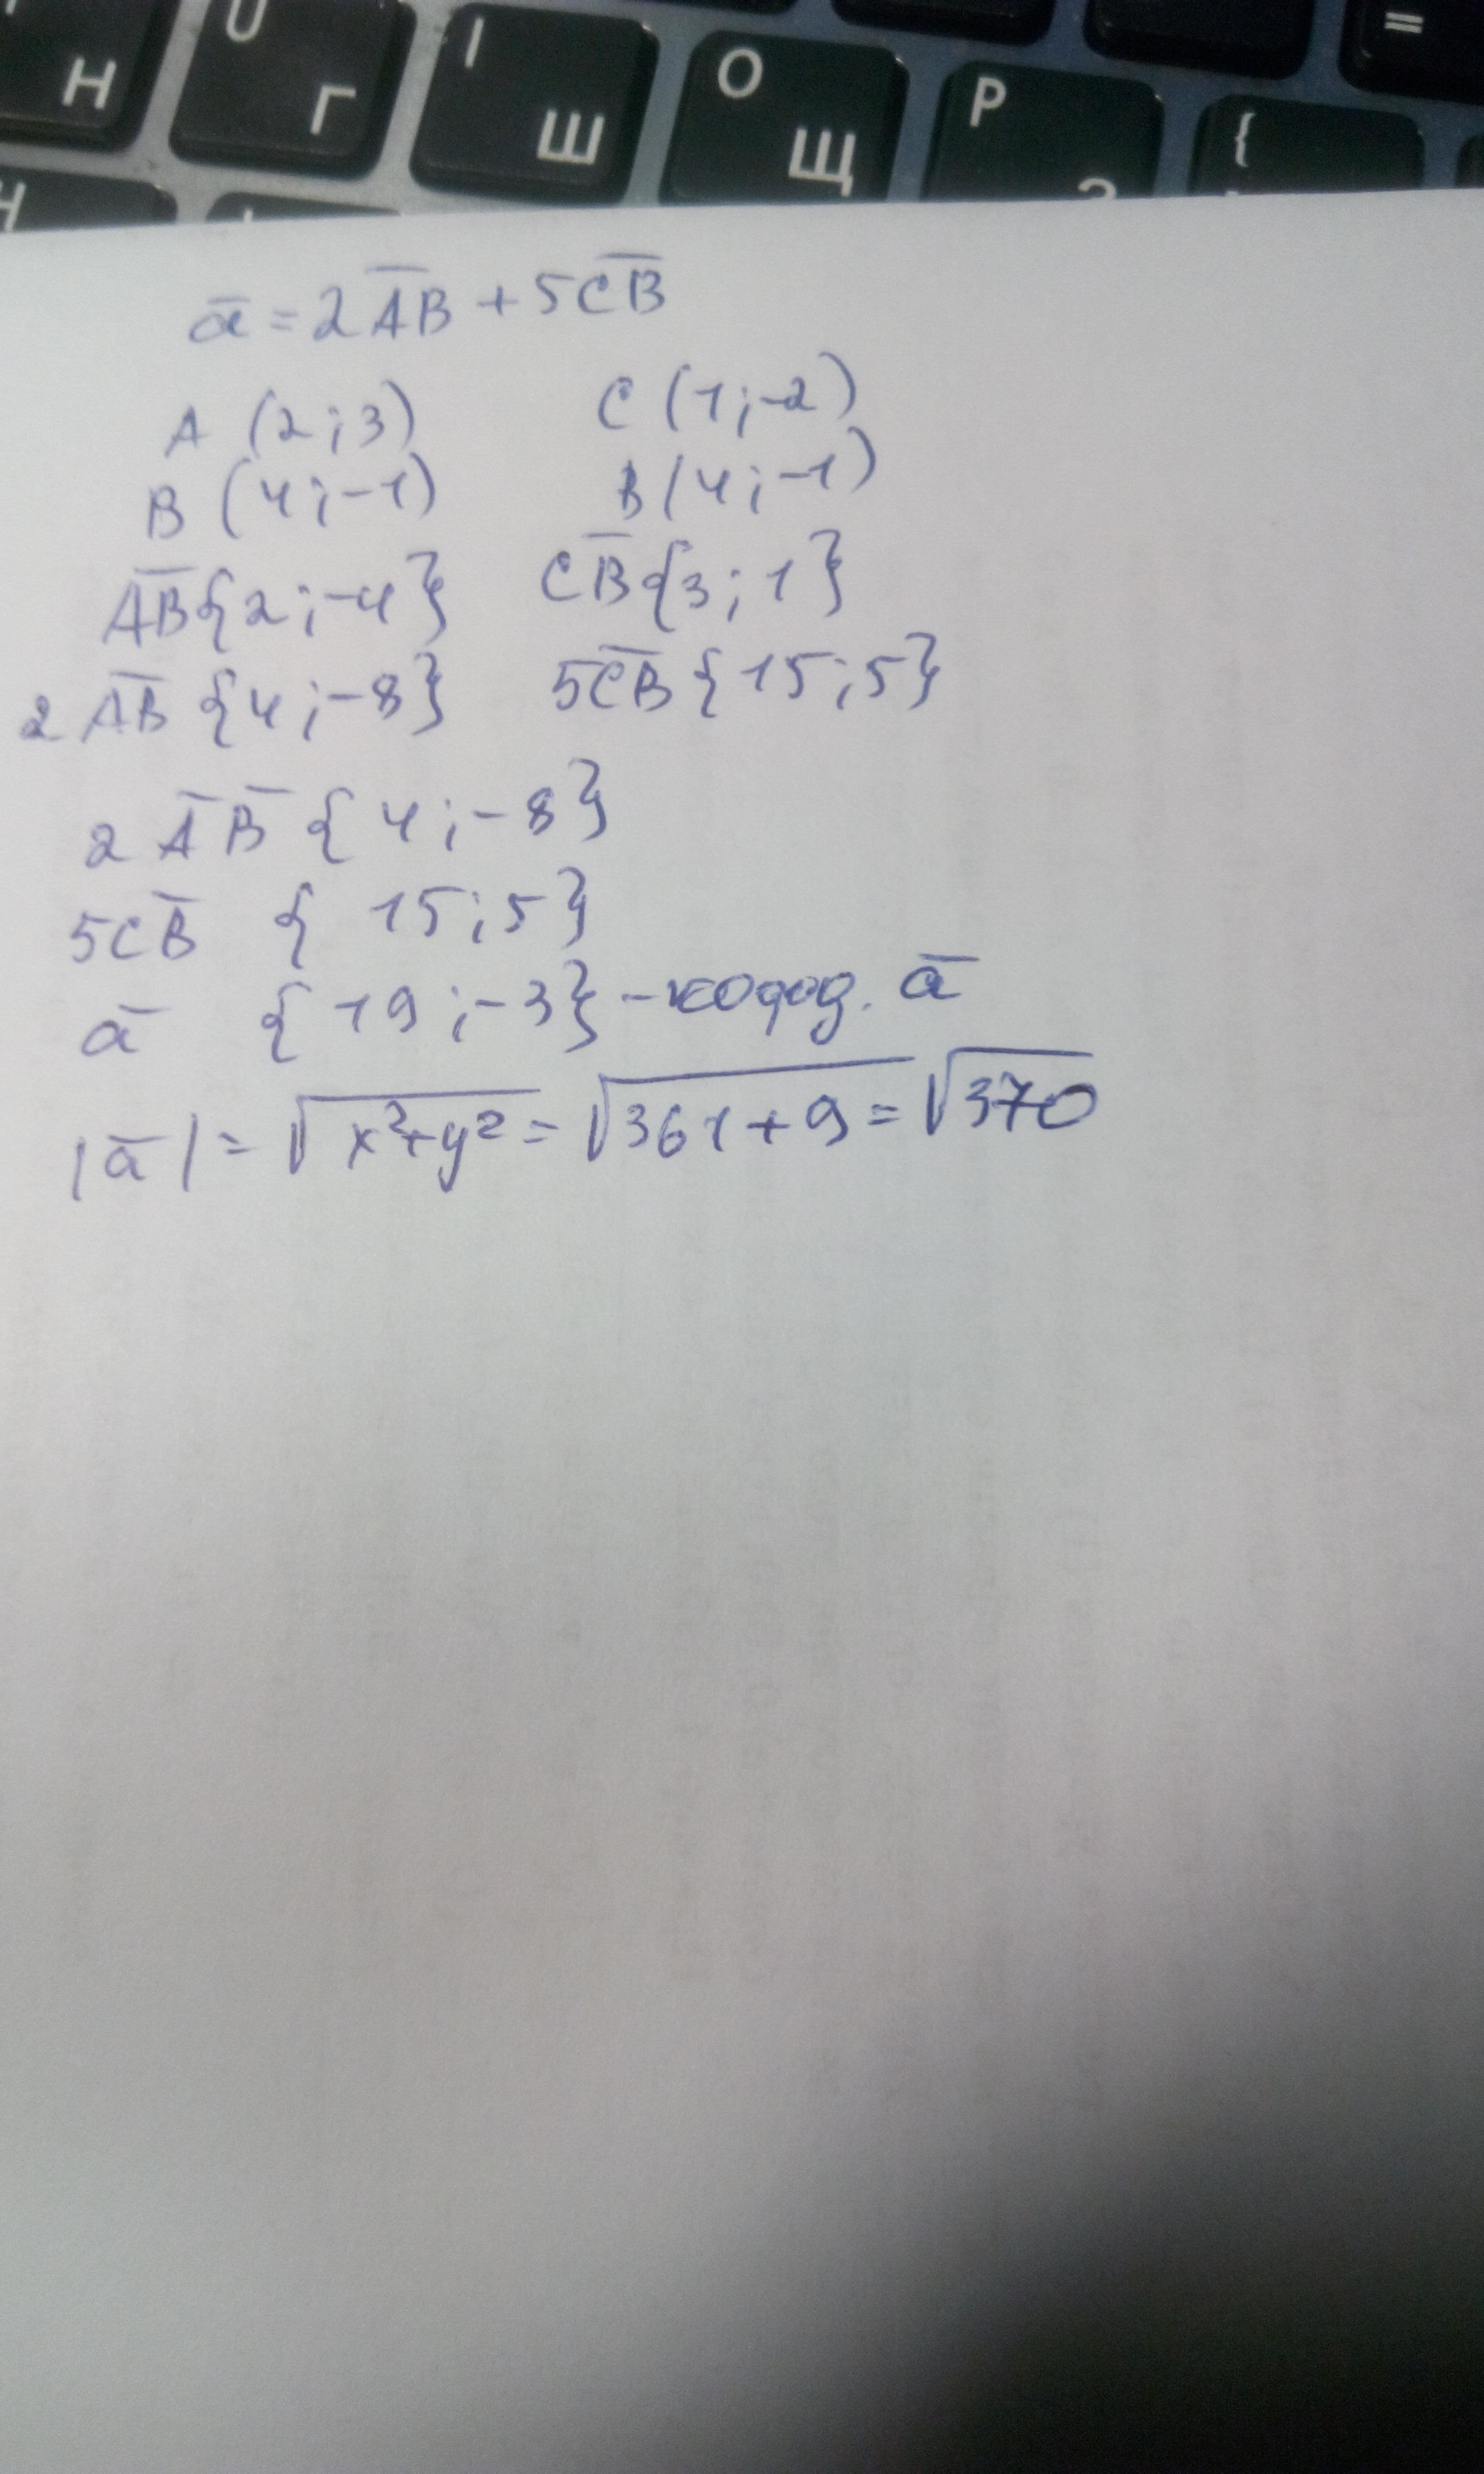 Н U Г I Ш O Щ P З { =
Н
ā = 2A̅B̅ + 5C̅B̅
A (2;3) C (1;-2)
B (4;-1) B (4;-1)
A̅B̅{2;-4} C̅B̅{3;1}
2A̅B̅{4;-8} 5C̅B̅{15;5}
2A̅B̅{4;-8}
5CB̅ {15;5}
ā {19;-3} - коорд. ā
|ā| = √x²+y² = √361+9 = √370